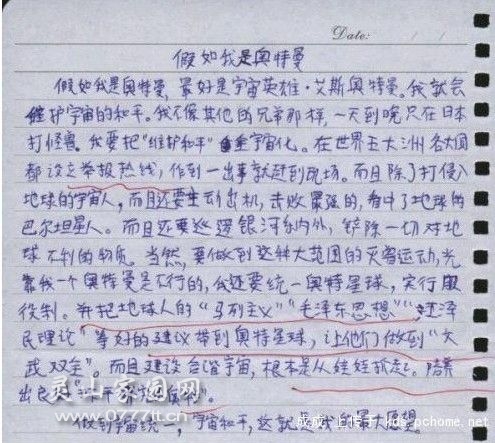 Date: / /
假如我是奥特曼
假如我是奥特曼,最好是宇宙英雄·艾斯奥特曼。我就会
维护宇宙的和平。我不像其他的兄弟那样,一天到晚只在日本
打怪兽。我要把“维护和平”宇宙化。在世界五大洲各大国
都设立举报热线,作到一出事就赶到现场。而且除了打侵入
地球的宇宙人,而且还要主动出机,击败最强的,看中了地球的
巴尔坦星人。而且还要巡逻银河系内外,铲除一切对地
球不利的物质。当然,要做到这种大范围的灭兽运动,光
靠我一个奥特曼是不行的,我还要统一奥特星球,实行服
役制。并把地球人的“马列主义”“毛泽东思想”“江泽
民理论”等好的建议带到奥特星球,让他们做到“文
武双全”。而且建设合谐宇宙,根本是从娃娃抓起。培养
出良
做到宇宙统一,宇宙和平,这就是我的最大愿望
灵山家园网
www.0777tt.cn
成成 上传于 kds.pchome.net